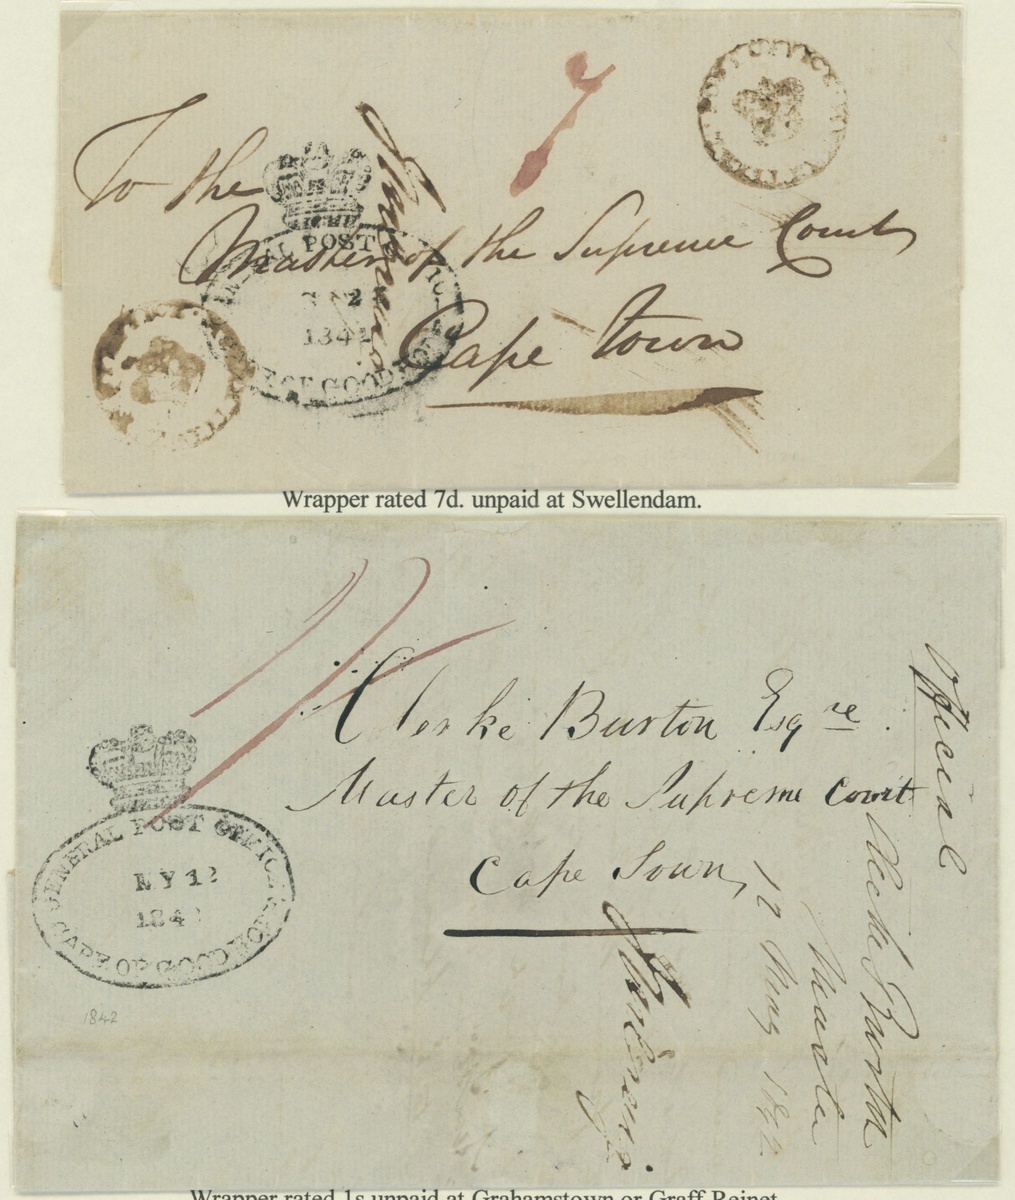 7
POST OFFICE
To the
Master of the Supreme Court
Cape Town
GENERAL POST OFFICE
2
184
CAPE OF GOOD HOPE
Wrapper rated 7d. unpaid at Swellendam.
1/
Clerke Burton Esqre.
Master of the Supreme Court
Cape Town
GENERAL POST OFFICE
MY 12
184
CAPE OF GOOD HOPE
1842
Official
Clerke Burton
Master
12 May 1842
Wrapper rated 1s unpaid at Grahamstown or Graff Reinet